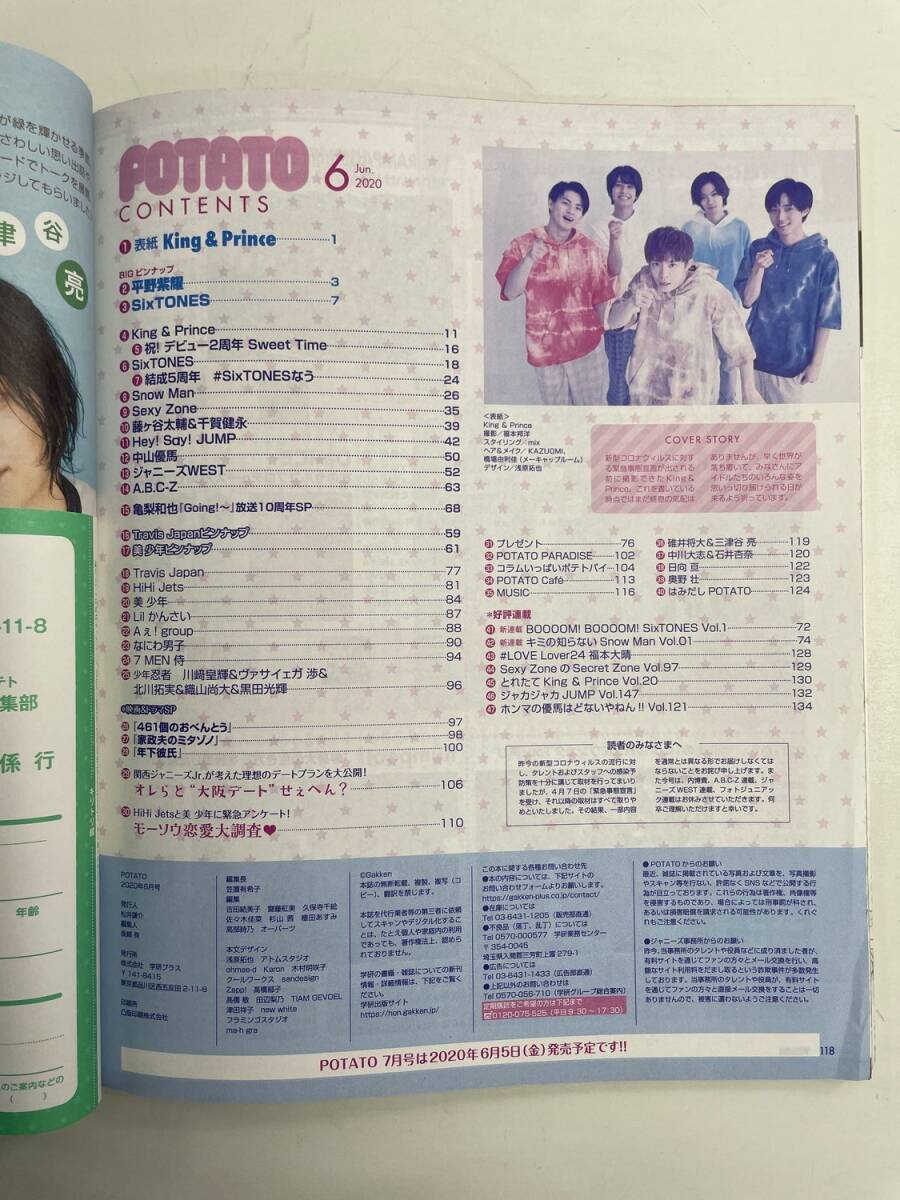 が緑を輝かせる季節
さわしい思い出話や
ードでトークを展開
ジしてもらいました
津 谷
亮
-11-8
集部
係 行
キリトリ線
年齢
のご案内などの
( )
POTATO
6 Jun. 2020
CONTENTS
1 表紙 King & Prince 1
BIGピンナップ
2 平野紫耀 3
3 SixTONES 7
4 King & Prince 11
5 祝! デビュー2周年 Sweet Time 16
6 SixTONES 18
7 結成5周年 #SixTONESなう 24
8 Snow Man 26
9 Sexy Zone 35
10 藤ヶ谷太輔&千賀健永 39
11 Hey! Say! JUMP 42
12 中山優馬 50
13 ジャニーズWEST 52
14 A.B.C-Z 63
15 亀梨和也『Going!〜』放送10周年SP 68
16 Travis Japanピンナップ 59
17 美 少年ピンナップ 61
18 Travis Japan 77
19 HiHi Jets 81
20 美 少年 84
21 Lil かんさい 87
22 Aぇ! group 88
23 なにわ男子 90
24 7 MEN 侍 94
25 少年忍者 川﨑皇輝&ヴァサイェガ 渉&
北川拓実&織山尚大&黒田光輝 96
*映画&ドラマSP
26 『461個のおべんとう』 97
27 『家政夫のミタゾノ』 98
28 『年下彼氏』 100
29 関西ジャニーズJr.が考えた理想のデートプランを大公開!
オレらと“大阪デート”せぇへん? 106
30 HiHi Jetsと美 少年に緊急アンケート!
モーソウ恋愛大調査♥ 110
<表紙>
King & Prince
撮影/福本邦洋
スタイリング/mix
ヘア&メイク/KAZUOMI、
橋場由利佳(メーキャップルーム)
デザイン/浅原拓也
COVER STORY
新型コロナウィルスに対す
る緊急事態宣言が出される
前に撮影できたKing &
Prince。これを書いている
時点ではまだ終息の気配は
ありませんが、早く世界が
落ち着いて、みなさんにア
イドルたちのいろんな姿を
思いっ切り届けられる日が
来るよう祈っています。
31 プレゼント 76
32 POTATO PARADISE 102
33 コラムいっぱいポテトパイ 104
34 POTATO Café 113
35 MUSIC 116
36 碓井将大&三津谷 亮 119
37 中川大志&石井杏奈 120
38 日向 亘 122
39 奥野 壮 123
40 はみだし POTATO 124
*好評連載
41 新連載 BOOOOM! BOOOOM! SixTONES Vol.1 72
42 新連載 キミの知らない Snow Man Vol.01 74
43 #LOVE Lover24 福本大晴 128
44 Sexy Zone の Secret Zone Vol.97 129
45 とれたて King & Prince Vol.20 130
46 ジャカジャカ JUMP Vol.147 132
47 ホンマの優馬はどないやねん!! Vol.121 134
読者のみなさまへ
昨今の新型コロナウィルスの流行に対
し、タレントおよびスタッフへの感染予
防策を十分に講じて取材を行ってまいり
ましたが、4月7日の「緊急事態宣言」
を受け、それ以降の取材はすべて取りや
めといたしました。その結果、一部内容
を通常とは異なる形でお届けしなくては
ならないことをお詫び申し上げます。ま
た今号は、内博貴、A.B.C-Z連載、ジャ
ニーズWEST連載、フォトジェニアッ
ク連載はお休みさせていただきます。何
卒ご理解いただけますと幸いです。
POTATO
2020年6月号
発行人
松井謙介
編集人
発行所
株式会社 学研プラス
〒141-8415
東京都品川区西五反田2-11-8
印刷所
凸版印刷株式会社
編集長
笠置有希子
編集
吉田結美子 齋藤紅美 久保寺千絵
佐々木佳菜 杉山茜 植田あすみ
高部時乃 オーパーツ
本文デザイン
浅原拓也 アトムスタジオ
ohmae-d Karon 木村明咲子
クールワークス sandesign
Zapp! 高橋郁子
高橋敬 田辺梨乃 TIAM GEVDEL
津田祥子 new white
フラミンゴスタジオ
ma-h gra
©Gakken
本誌の無断転載、複製、複写(コ
ピー)、翻訳を禁じます。
本誌を代行業者等の第三者に依頼
してスキャンやデジタル化するこ
とは、たとえ個人や家庭内の利用
であっても、著作権法上、認めら
れておりません。
学研の書籍・雑誌についての新刊
情報・詳細情報は、下記をご覧く
ださい。
学研出版サイト
https://hon.gakken.jp/
この本に関する各種お問い合わせ先
●本の内容については、下記サイトの
お問い合わせフォームよりお願いします。
https://gakken-plus.co.jp/contact/
●在庫については
Tel 03-6431-1205 (販売部直通)
●不良品(落丁、乱丁)については
Tel 0570-000577 学研業務センター
〒354-0045
埼玉県入間郡三芳町上富 279-1
●広告については
Tel 03-6431-1433 (広告部直通)
●上記以外のお問い合わせは
Tel 0570-056-710 (学研グループ総合案内)
定期購読をご希望の方は下記まで
0120-075-525 (平日9:30〜17:30)
●POTATOからのお願い
最近、雑誌に掲載されている写真および文章を、写真撮影
やスキャン等を行ない、許諾なくSNSなどで公開する行
為が目立っております。これらの行為は著作権、肖像権等
を侵害するものであり、場合によっては刑事罰が科され、
あるいは損害賠償を請求される可能性があります。くれぐ
れもご注意ください。
●ジャニーズ事務所からのお願い
昨今、当事務所のタレントや役員などに成り済ました者が、
有料サイトを通じてファンの方々とメール交換を行い、高
額なサイト利用料をだまし取るという詐欺事件が多数発生
しております。当事務所のタレントや役員が、有料サイト
を通じてファンの方々と直接メール交換をすることは一切
ありませんので、被害に遭わないようご注意ください。
POTATO 7月号は2020年6月5日(金)発売予定です!!
118